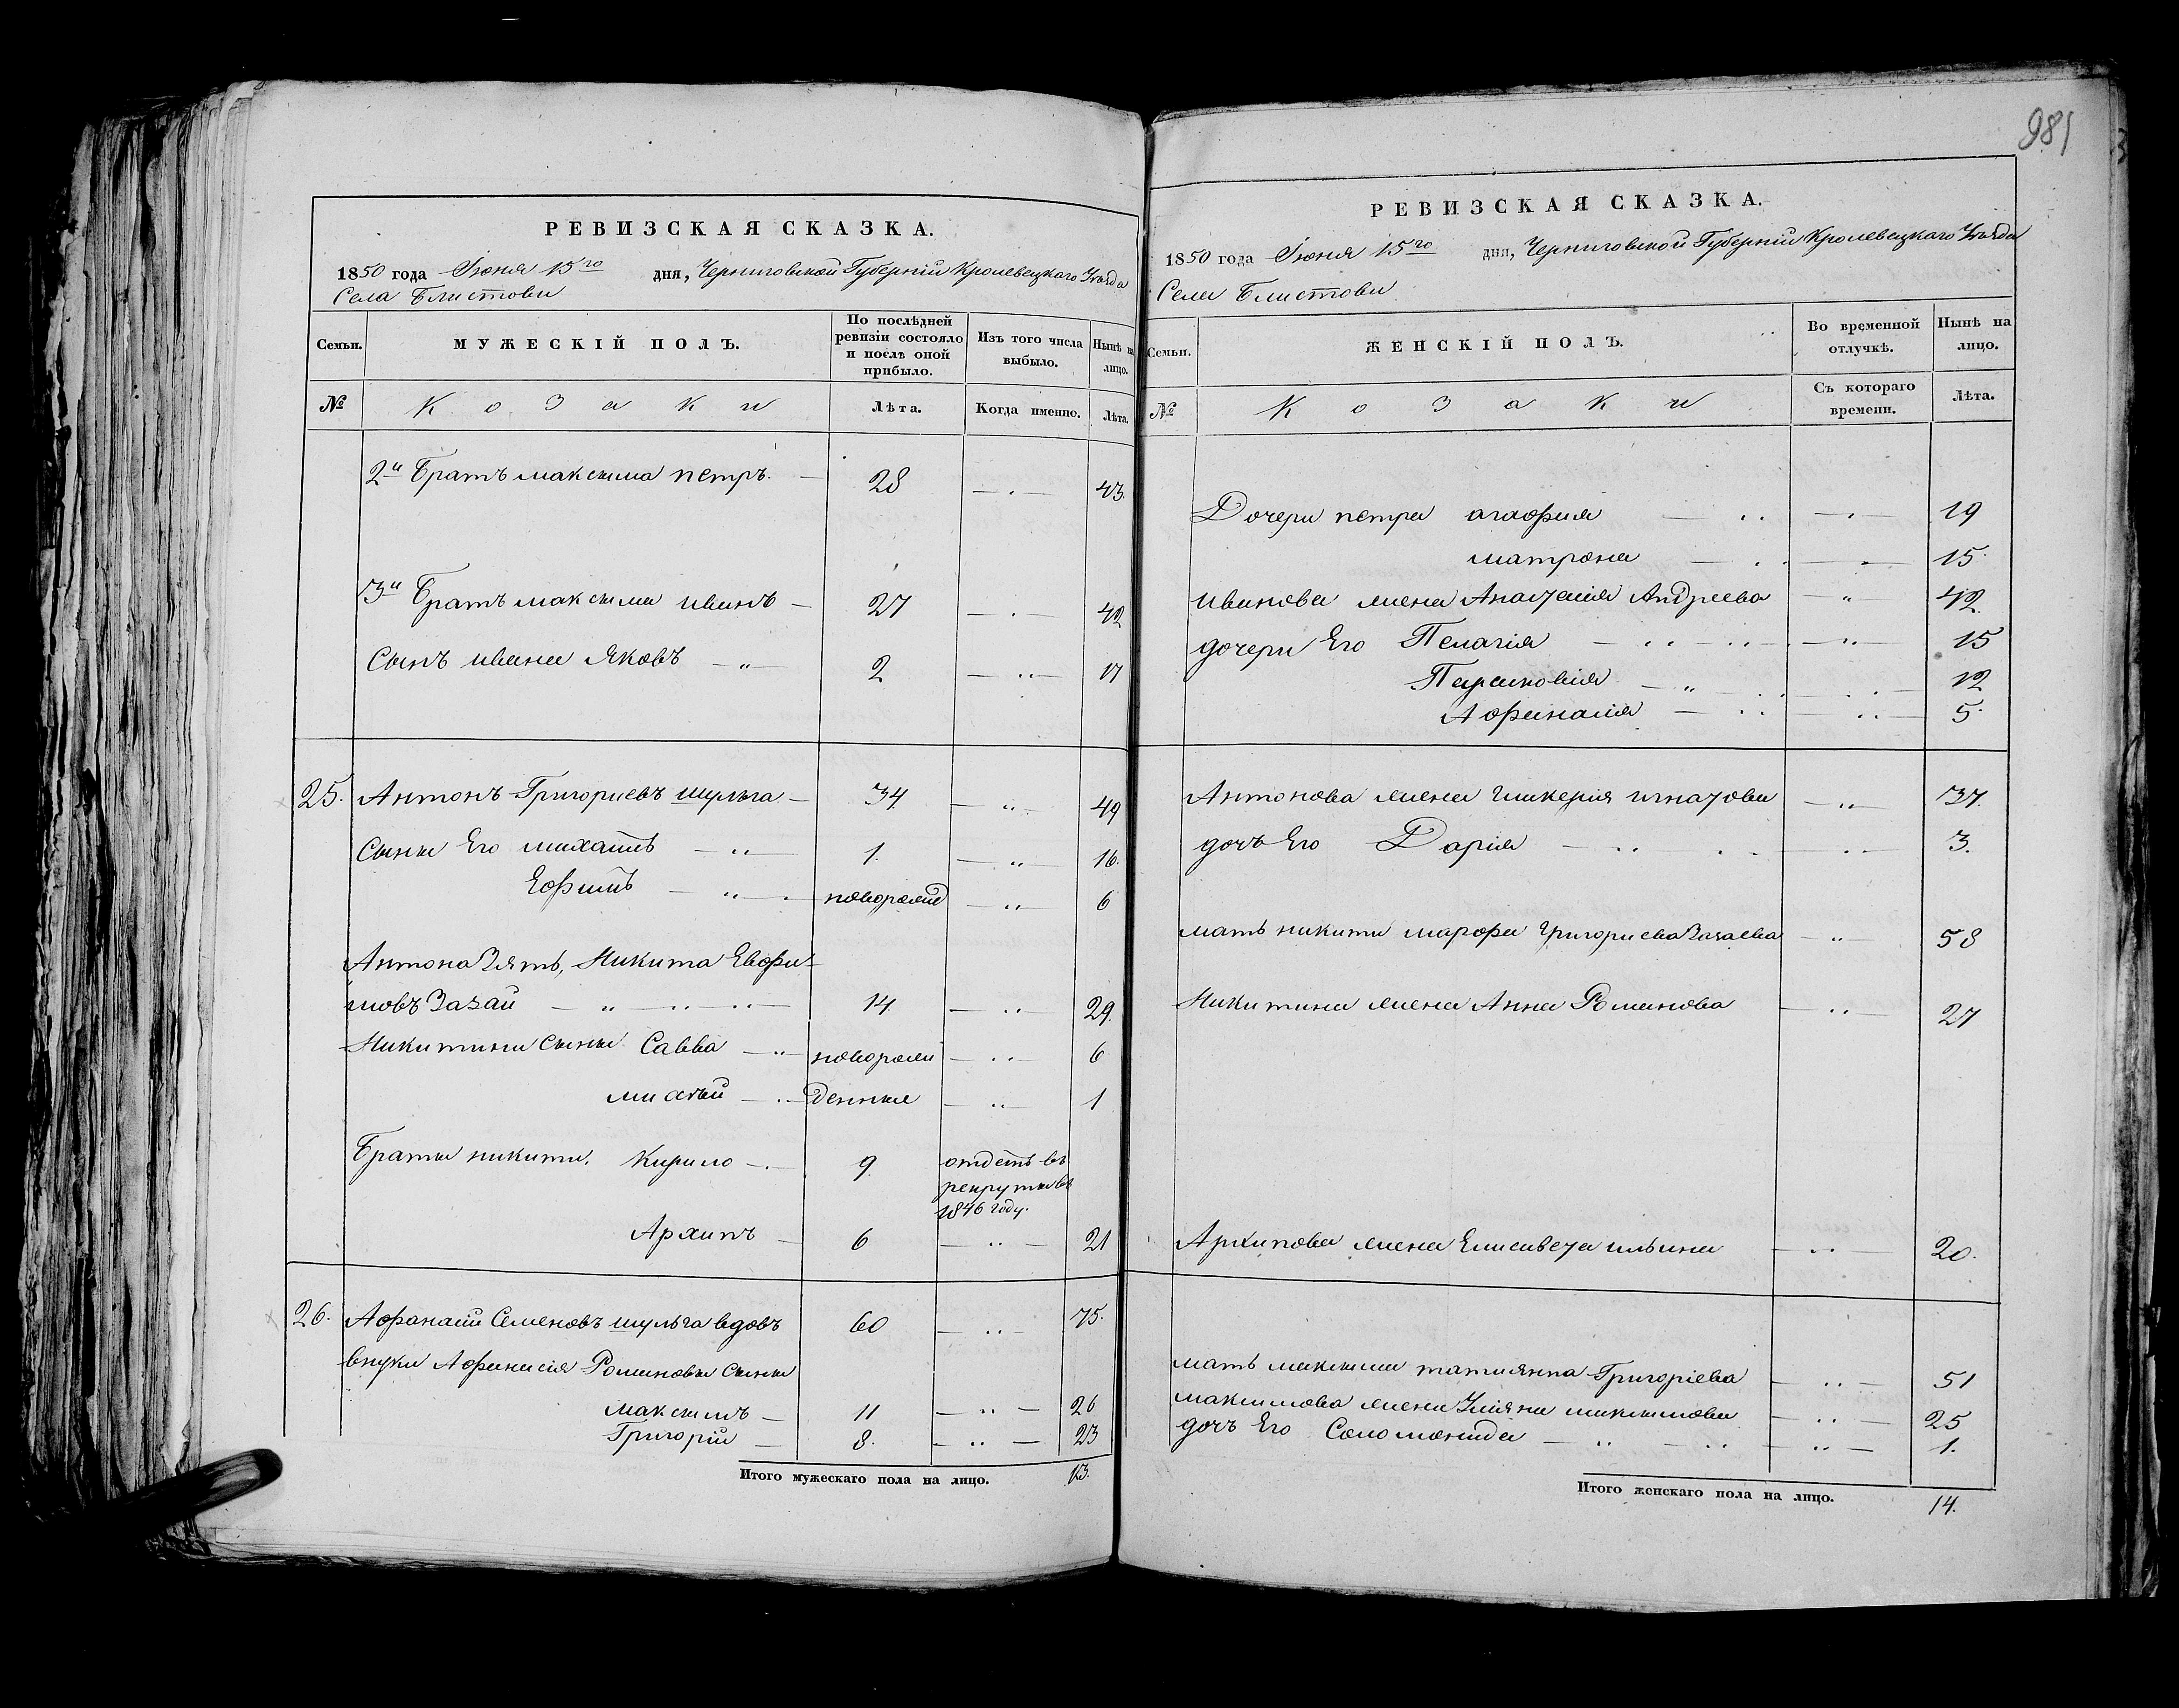 981
РЕВИЗСКАЯ СКАЗКА.
1850 года Июня 15го дня, Черниговской Губерніи Кролевецкаго Уѣзда
Села Блистови
Семьи. МУЖЕСКІЙ ПОЛЪ. По послѣдней ревизіи состояло и послѣ оной прибыло. Изъ того числа выбыло. Нынѣ на лицо.
№ Козаки Лѣта. Когда именно. Лѣта.
2й Братъ максима петръ. — 28 — 43.
3й Братъ максима иванъ — 27 — 42
Сынъ ивана Яковъ — 2 — 17
25. Антонъ Григориевъ шульга — 34 — 49
Сыны Его михаилъ — 1. — 16.
Ефимъ — новорожд — 6
Антона Зять, Никита Евфи-
мовъ Зазай — 14. — 29.
Никитини Сыны Савва — новорож — 6
мисѣй — денные — 1
Браты никити. Кирило — 9. отдатъ въ
рекруты въ
1846 году.
Архипъ — 6 — 21
26. Афанасій Семеновъ шульга вдовъ 60 — 75.
внуки Афанасія Романовы Сыны
Максимъ — 11 — 26
Григорій — 8. — 23
Итого мужескаго пола на лицо. 13.
РЕВИЗСКАЯ СКАЗКА.
1850 года Июня 15го дня, Черниговской Губерніи Кролевецкаго Уѣзда
Села Блистови
Семьи. ЖЕНСКІЙ ПОЛЪ. Во временной отлучкѣ. Нынѣ на лицо.
№ Козаки Съ котораго времени. Лѣта.
Дочери петра агафия — 19
матрона — 15.
иванова жена Анастасія Андреева — 42.
дочери Его Пелагія — 15
Парасковія — 12
Афанасія — 5.
Антонова жена гликерия игнатова — 37.
дочь Его Дарія — 3.
мать никити марфа григориева Зазаева — 58
Никитина жена Анна Романова — 27
Архипова жена Елисавета ильина — 20.
мать максима татиянна Григоріева — 51
максимова жена Улияна максимова — 25
дочь Его Соломонида — 1.
Итого женскаго пола на лицо. 14.